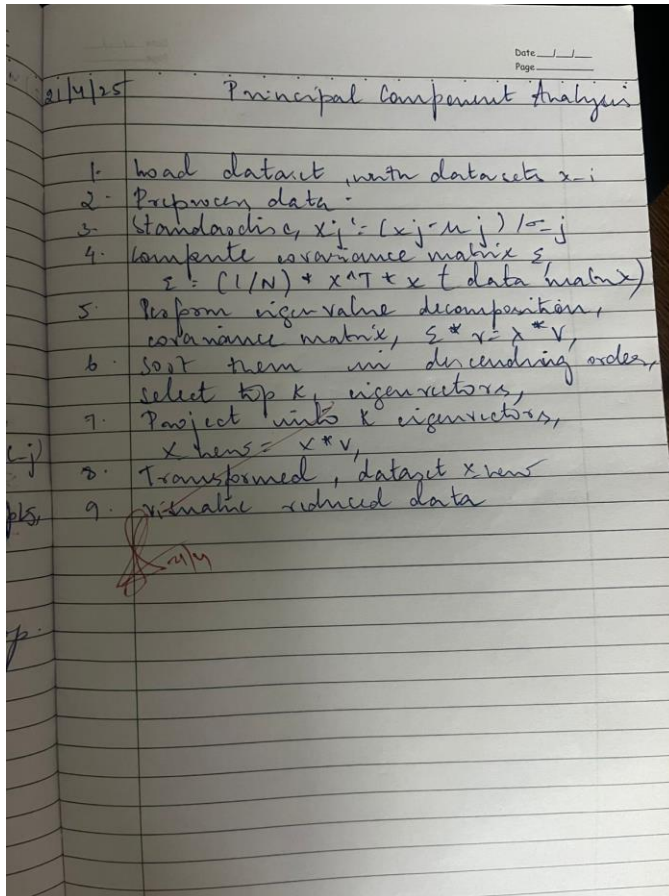 Date __/__/__
Page
21/4/25 Principal Component Analysis
1. Load dataset, with datasets x-i
2. Preprocess data.
3. Standardise, xj' = (xj - μj) / σ-j
4. Compute covariance matrix Σ,
Σ = (1/N) * x^T * x ( data matrix)
5. Perform eigenvalue decomposition,
covariance matrix, Σ * v = λ * v,
6. Sort them in descending order,
select top K, eigenvectors,
7. Project into K eigenvectors,
x new = x * v,
8. Transformed, dataset x new
9. visualise reduced data
-j)
pts,
p.